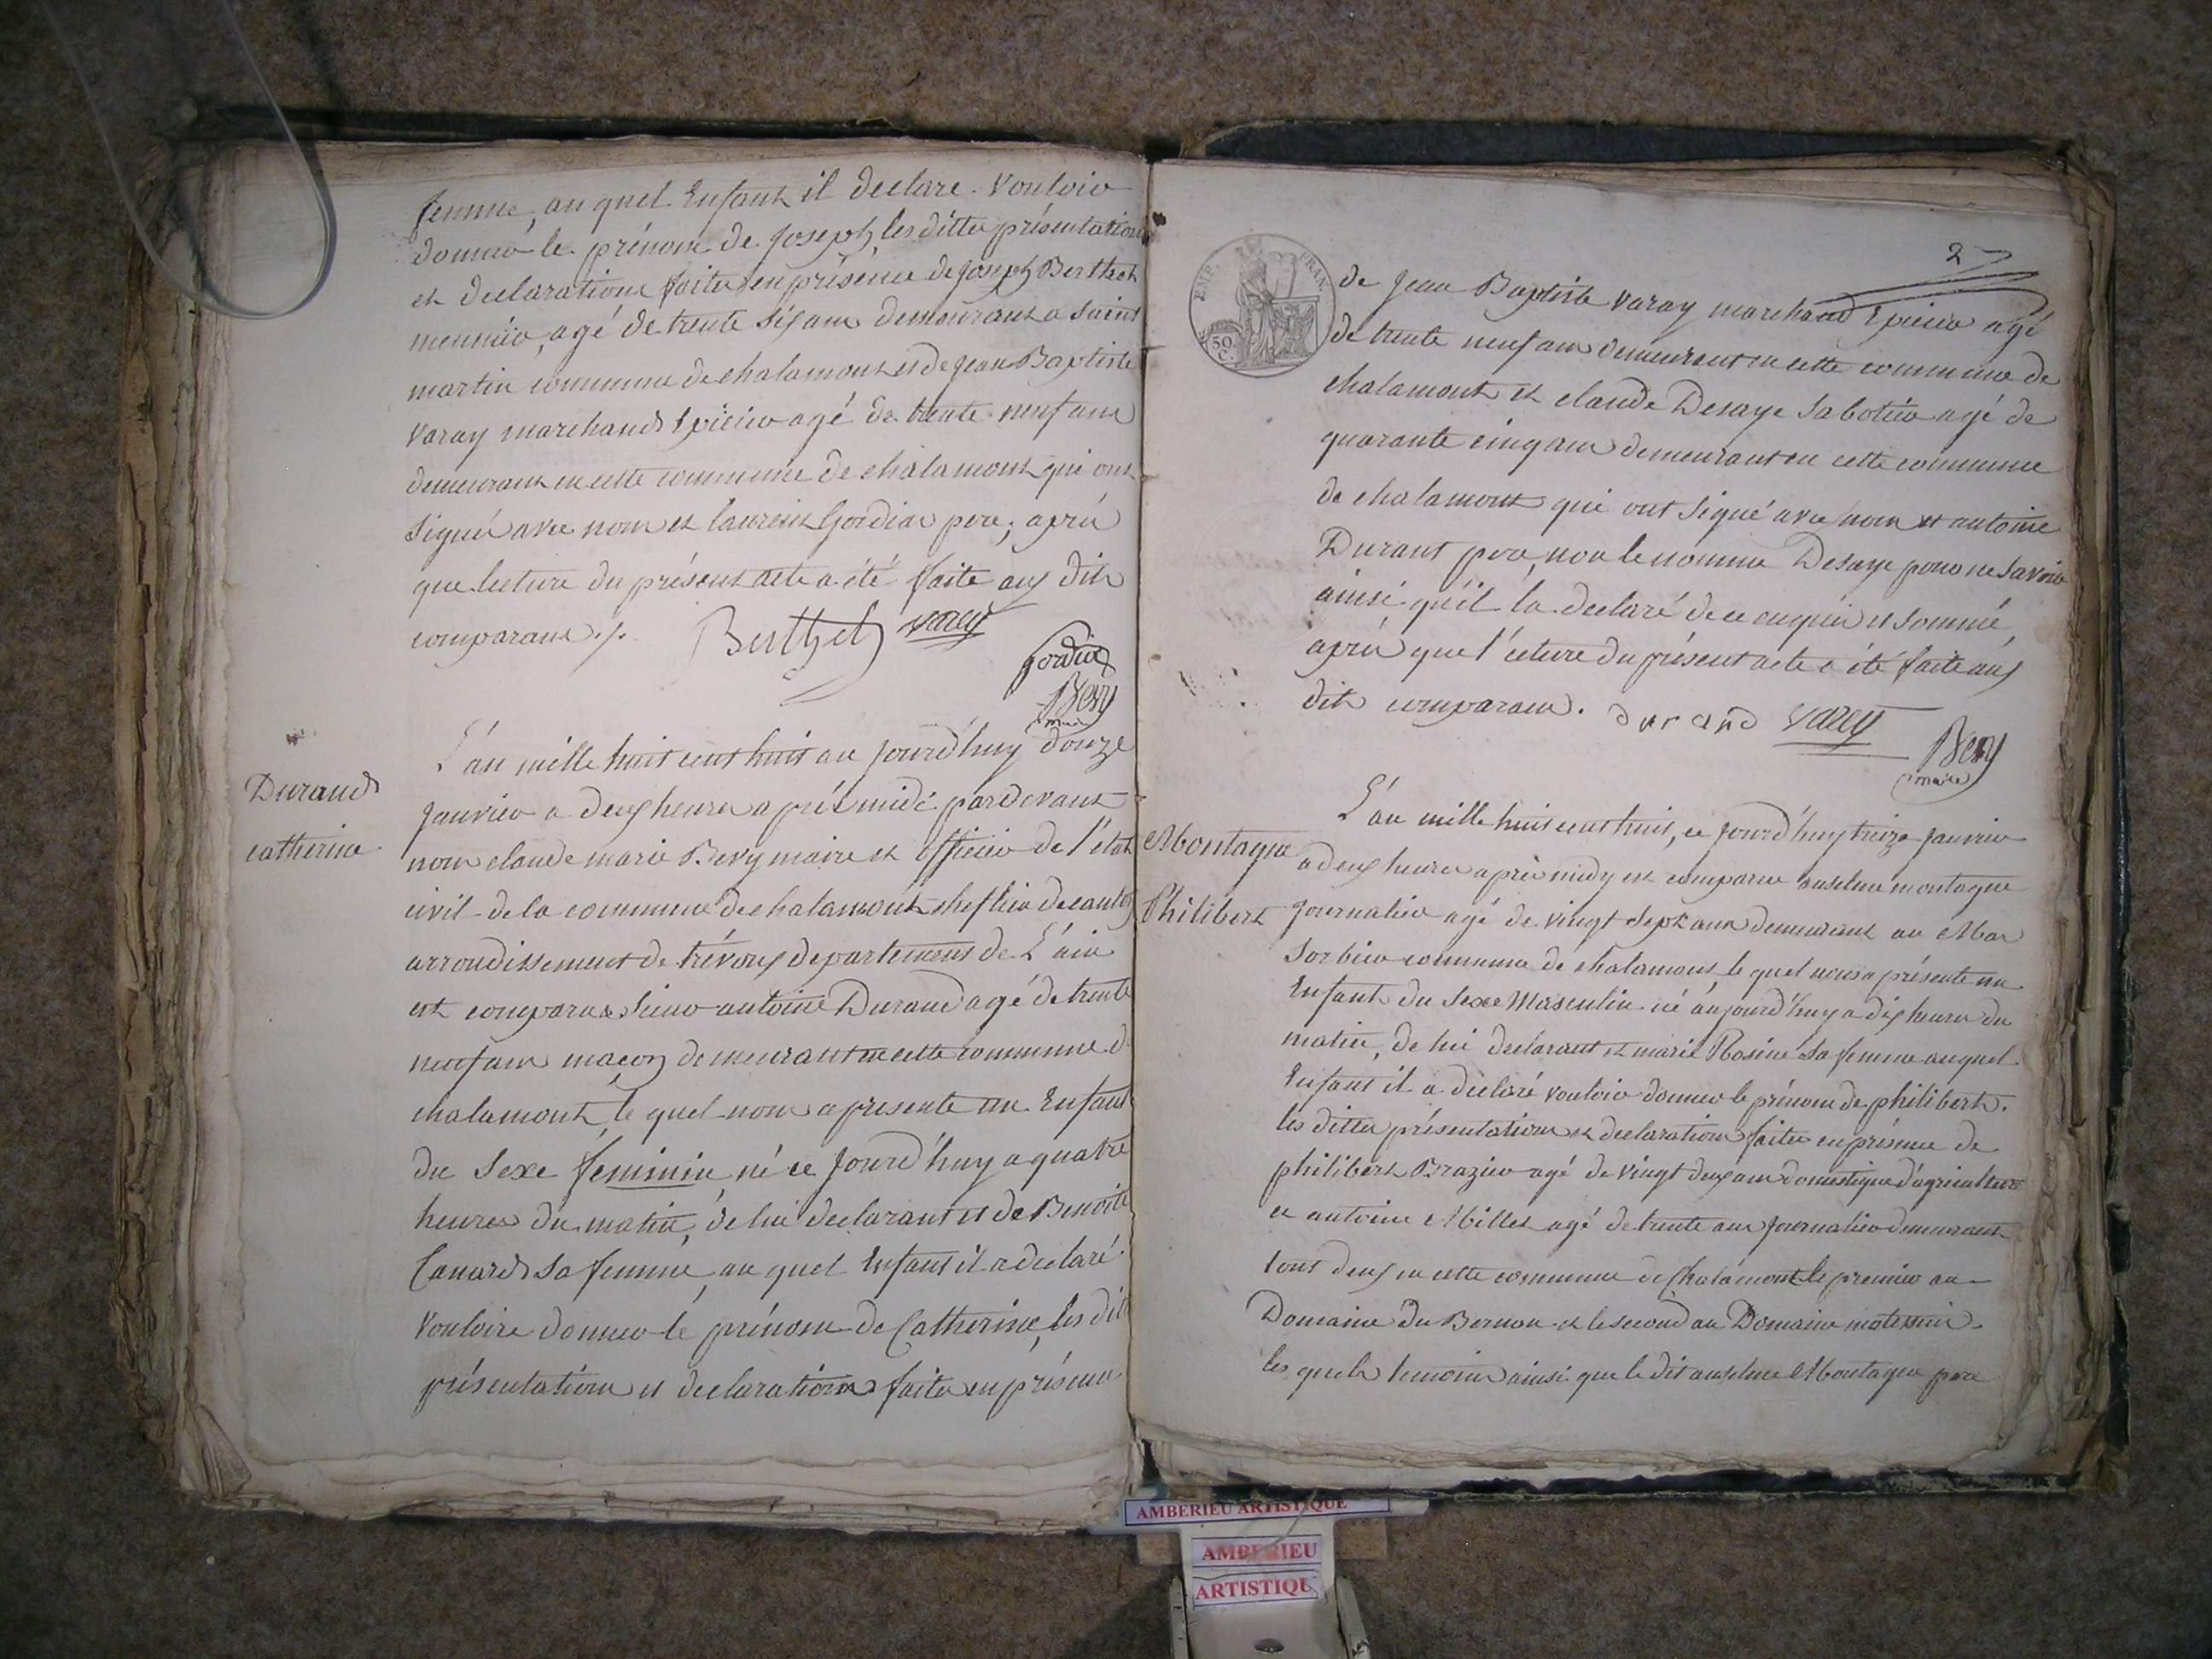 femme, au quel Enfant il declare vouloir
donner le prénom de Joseph, les dittes présentation
et declarations faites en présence de Joseph Berthet
meunier, agé de trente six ans demeurant a Saint
martin commune de chalamont et de Jean Baptiste
Varay marchand Epicier agé de trente neuf ans
demeurant en cette commune de chalamont qui ont
signé avec nous et laurent Gordiat pere, après
que lecture du présent acte a été faite aux dits
comparans ./.
Berthet varey
gordiat
Bevy
maire
Durand
catherine
L'an mille huit cent huit au jourd'huy douze
Janvier a deux heures après midi pardevant
nous claude marie Bevy maire et officier de l'état
civil de la commune de chalamont chef lieu de canton
arrondissement de trévoux departement de L'ain
est comparu sieur antoine Durand agé de trente
neuf ans maçon demeurant en cette commune d
chalamont, le quel nous a presenté un Enfant
du Sexe féminin né ce jourd'huy a quatre
heures du matin, de lui declarant et de Benoite
Canard sa femme, au quel Enfant il a declaré
vouloire donner le prénom de Catherine, les dit
présentations et declarations faites en présence
27
EMP. FRAN.
50
C.
de Jean Baptiste Varay marchand Epicier agé
de trente neuf ans demeurant en cette commune de
chalamont et claude Desaye Sabotier agé de
quarante cinq ans demeurant en cette commune
de chalamont qui ont signé avec nous et antoine
Durant pere, non le nommé Desaye pour ne savoir
ainsi qu'il l'a declaré de ce enquis et sommé,
après que l'ecture du présent acte a été faite aux
dits comparans. durand varey
Bevy
maire
Montagne
Philibert
L'an mille huit cent huit, ce jourd'huy treize Janvier
a deux heures après midy est comparu anselme montagne
Journalier agé de vingt sept ans demeurant au Mas
Sorbier commune de chalamont, le quel nous a présenté un
Enfant du Sexe Masculin né aujourd'huy a dix heures du
matin, de lui declarant et marie Rosine sa femme auquel
Enfant il a déclaré vouloir donner le prénom de philibert.
les dittes présentations et declarations faites en présence de
philibert Brazier agé de vingt deux ans domestique d'agriculture
et antoine Millet agé de trente ans Journalier demeurant
tous deux en cette commune de Chalamont le premier au
Domaine du Bernon et le second au Domaine
les quels temoins ainsi que le dit anselme Montagne pere
AMBERIEU ARTISTIQUE
AMBERIEU
ARTISTIQU